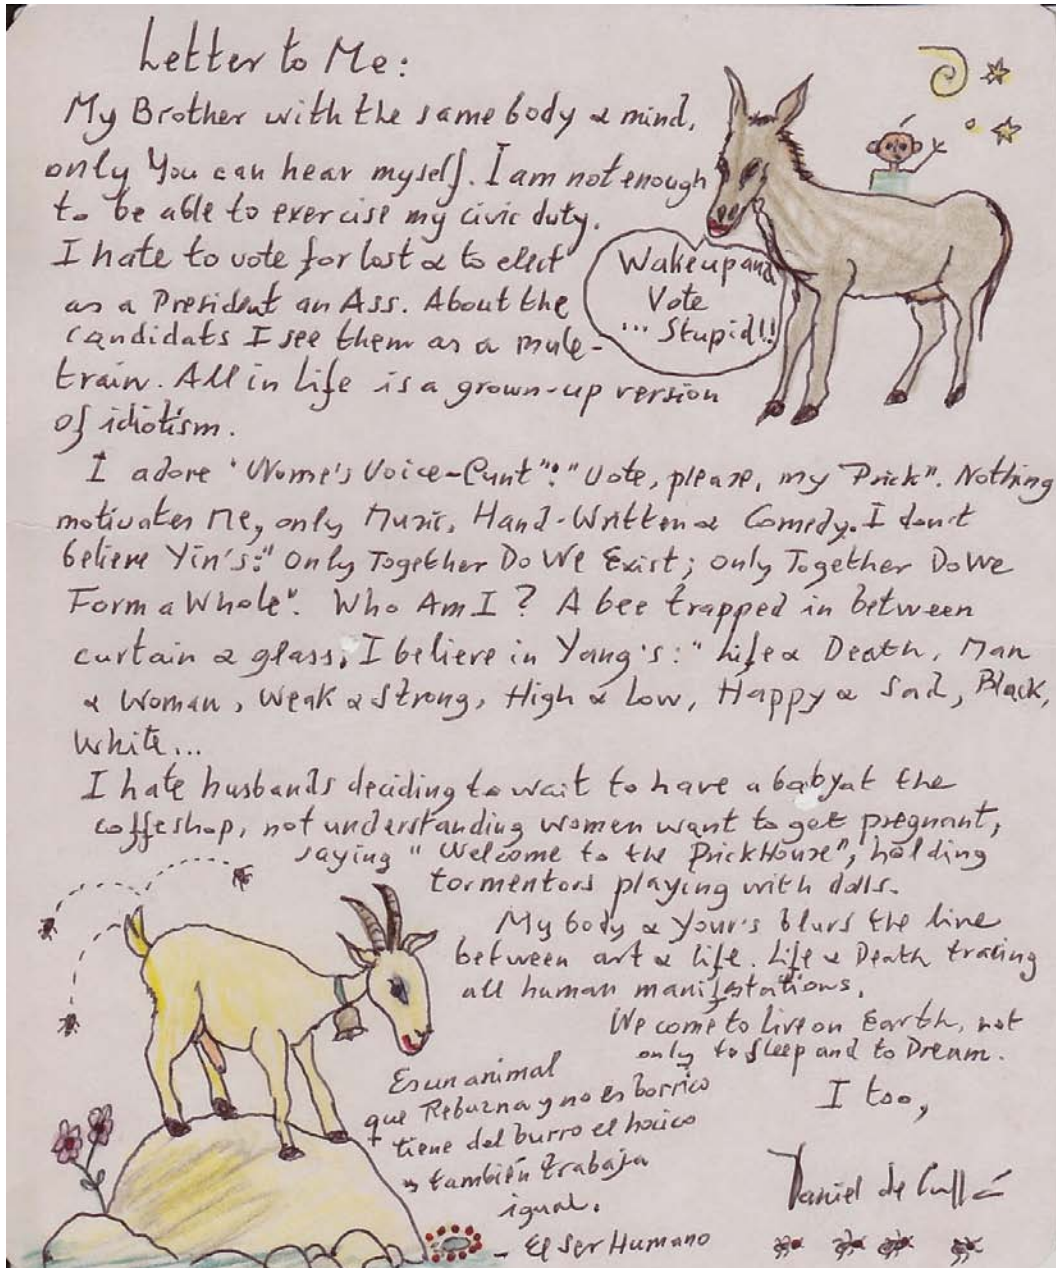 Letter to Me:
My Brother with the same body & mind,
only You can hear myself. I am not enough
to be able to exercise my civic duty.
I hate to vote for lost & to elect
as a President an Ass. About the
candidats I see them as a mule-
train. All in life is a grown-up version
of idiotism.
Wake up and
Vote
... Stupid!!
I adore "Wome's Voice-Cunt": "Vote, please, my Prick". Nothing
motivates Me, only Music, Hand-Written & Comedy. I don't
believe Yin's: "Only Together Do We Exist; only Together Do We
Form a Whole". Who Am I? A bee trapped in between
curtain & glass, I believe in Yang's: "Life & Death, Man
& Woman, Weak & Strong, High & Low, Happy & Sad, Black,
White...
I hate husbands deciding to wait to have a baby at the
coffeshop, not understanding women want to get pregnant,
saying "Welcome to the PrickHouse", holding
tormentors playing with dolls.
My body & Your's blurs the line
between art & life. Life & Death tracing
all human manifestations.
We come to live on Earth, not
only to sleep and to Dream.
I too,
Daniel de Cullá
Es un animal
que Rebuzna y no es borrico
tiene del burro el hocico
y también trabaja
igual.
- El Ser Humano